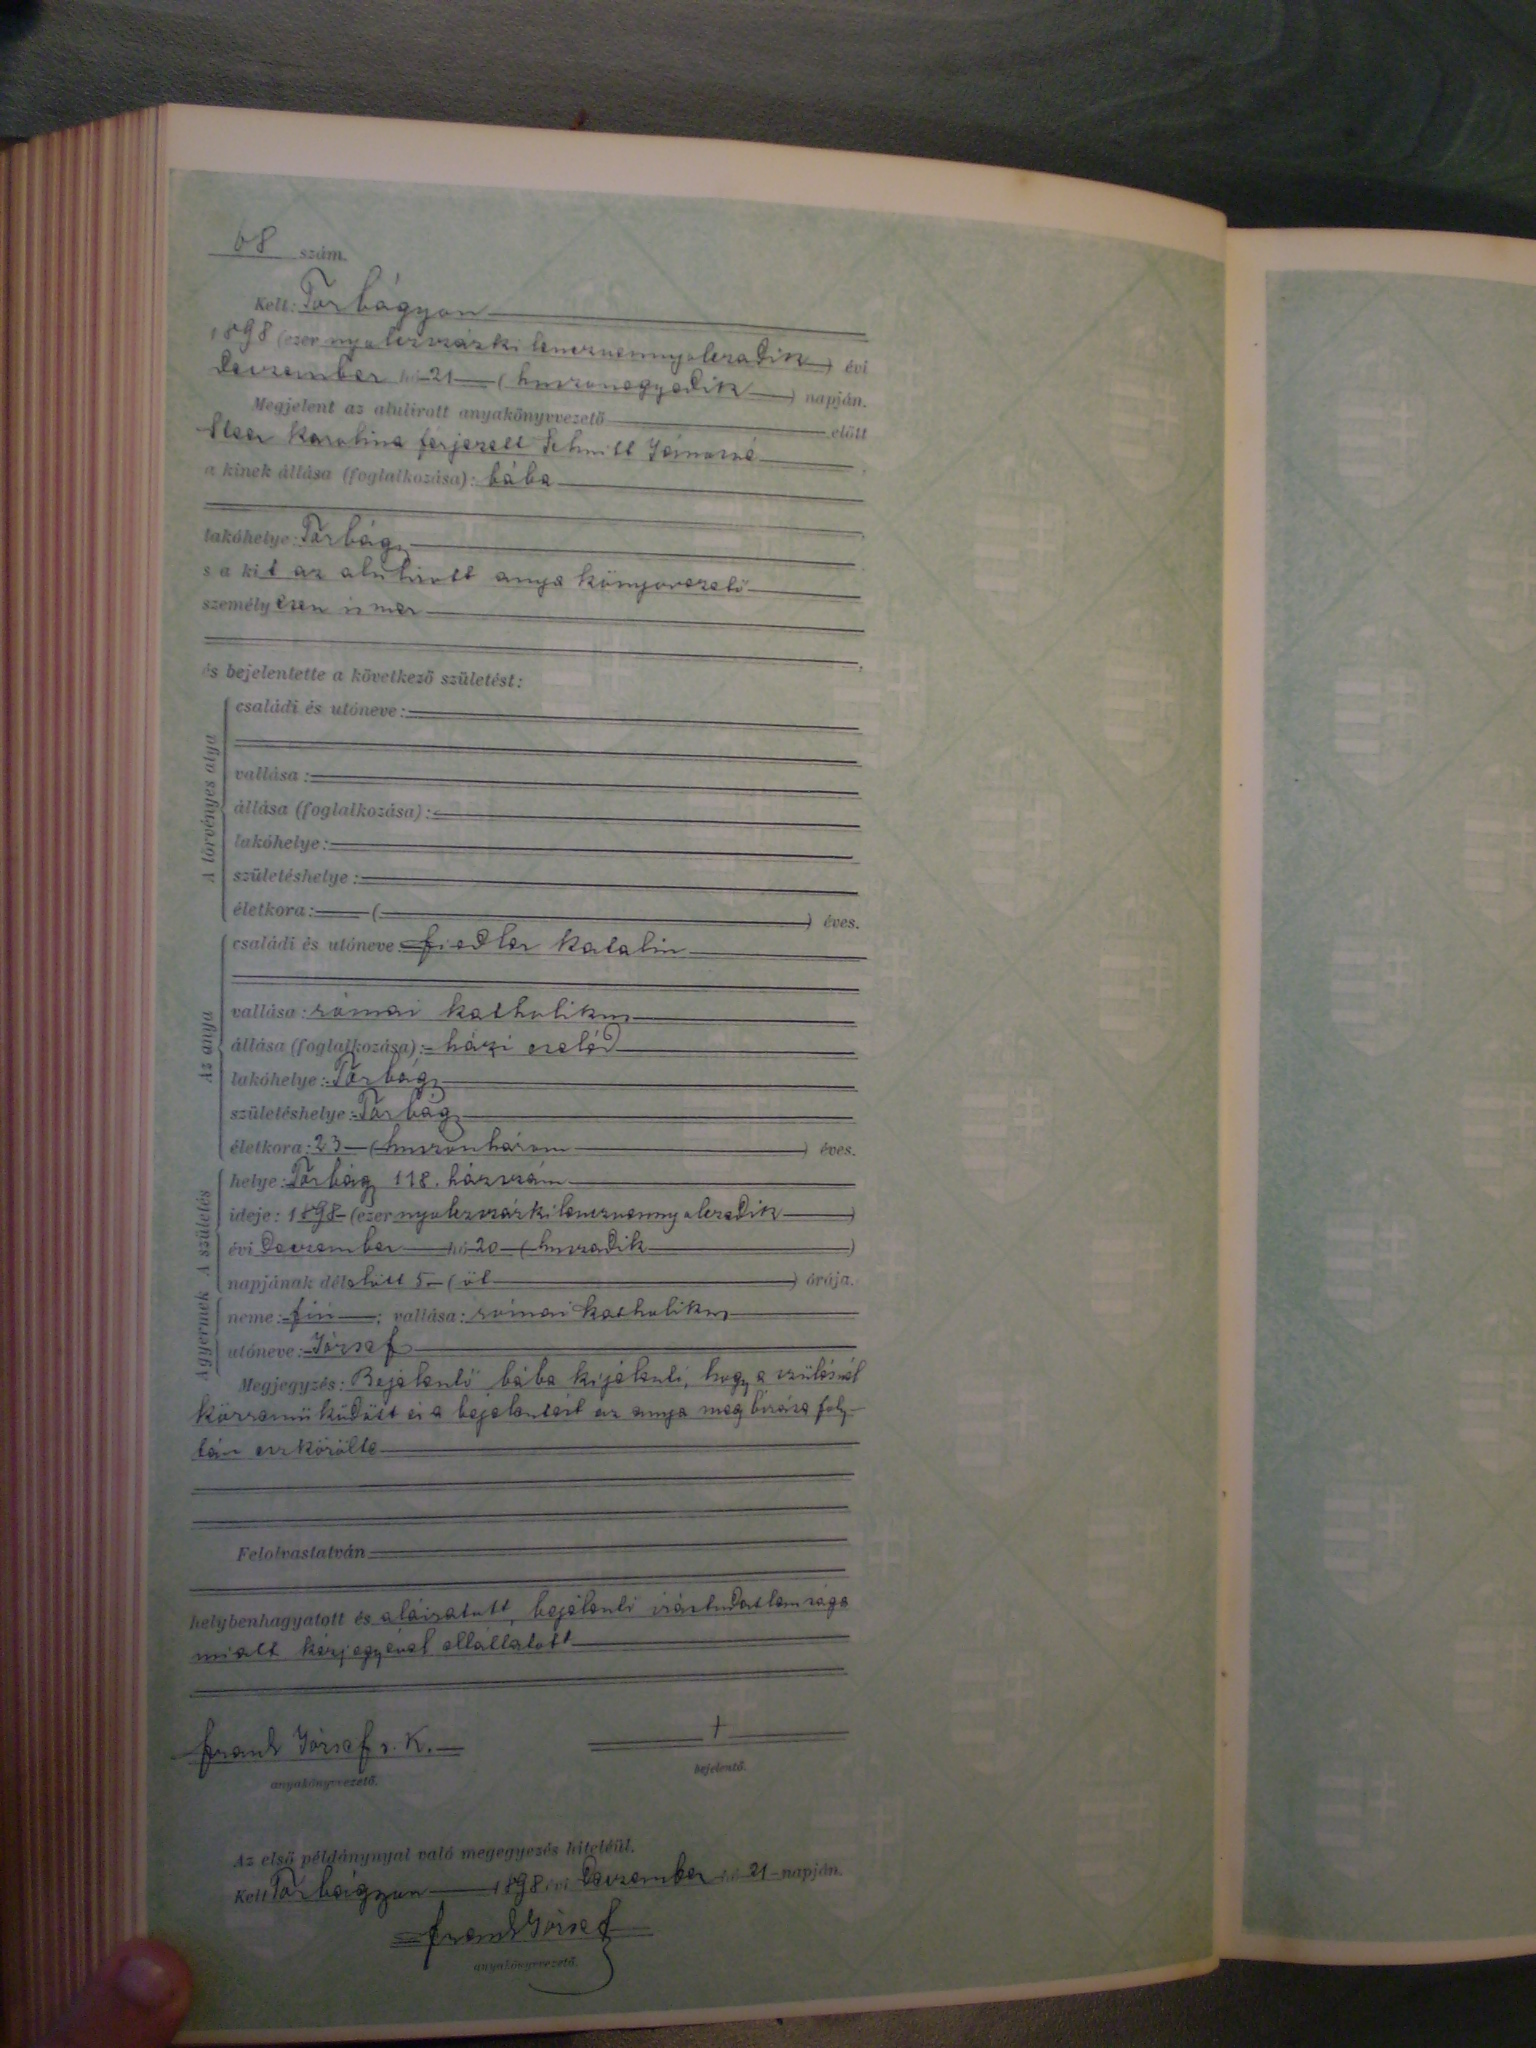 68 szám.
Kelt: Torbágyon
1898 (ezer nyolczszázkilenczvennyolczadik) évi
Deczember hó 21 (huszonegyedik) napján.
Megjelent az alulirott anyakönyvvezető előtt
Karolina férjezett Schmitt Jánosné
a kinek állása (foglalkozása): bába
lakóhelye: Torbágy
s a kit az alulirott anyakönyvvezető
személyesen ismer
és bejelentette a következő születést:
A törvényes atya
családi és utóneve:
vallása:
állása (foglalkozása):
lakóhelye:
születéshelye:
életkora: ( ) éves.
Az anya
családi és utóneve: Fiedler Katalin
vallása: római katholikus
állása (foglalkozása): házi cseléd
lakóhelye: Torbágy
születéshelye: Torbágy
életkora: 23 (huszonhárom) éves.
A születés
helye: Torbágy 118. házszám
ideje: 1898 (ezer nyolczszázkilenczvennyolczadik)
évi Deczember hó 20 (huszadik)
napjának délelőtt 5 (öt) órája.
A gyermek
neme: fiú; vallása: római katholikus
utóneve: József
Megjegyzés: Bejelentő bába kijelenti, hogy a szülésnél
közremüködött és a bejelentést az anya megbizása foly-
tán eszközölte
Felolvastatván
helybenhagyatott és aláiratott, bejelentő irástudatlansága
miatt kézjegyével elláttatott
Frank József s. k.
anyakönyvvezető.
+
bejelentő.
Az első példánynyal való megegyezés hiteléül.
Kelt Torbágyon 1898 évi Deczember hó 21 napján.
Frank József
anyakönyvvezető.